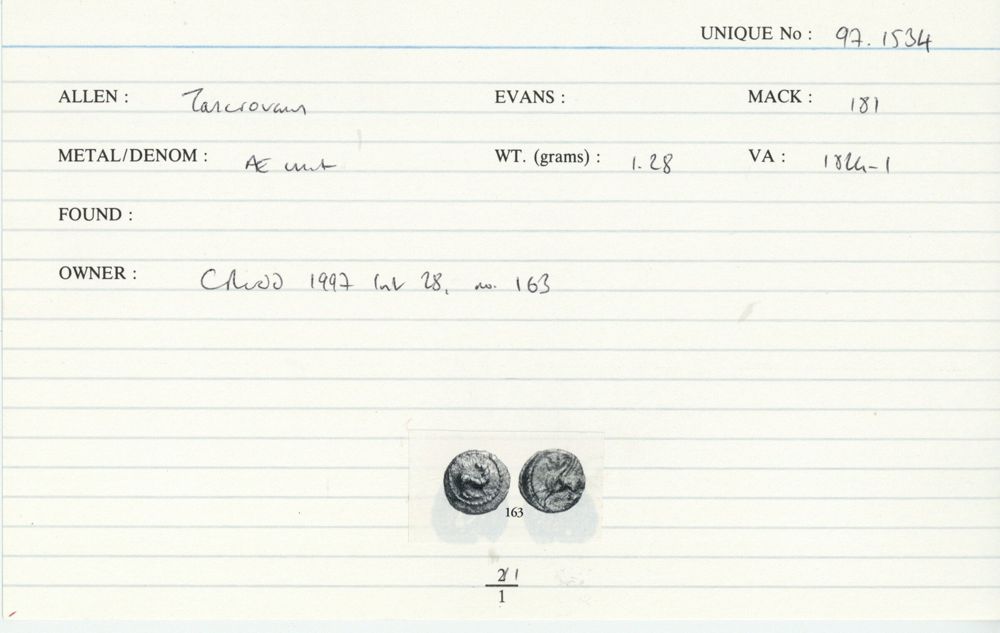 UNIQUE No : 97. 1534
ALLEN : EVANS : MACK : 181
METAL/DENOM : Æ unit WT. (grams) : 1.28 VA : 1824-1
FOUND :
OWNER : 1997 28, no. 163
163
2/1
1